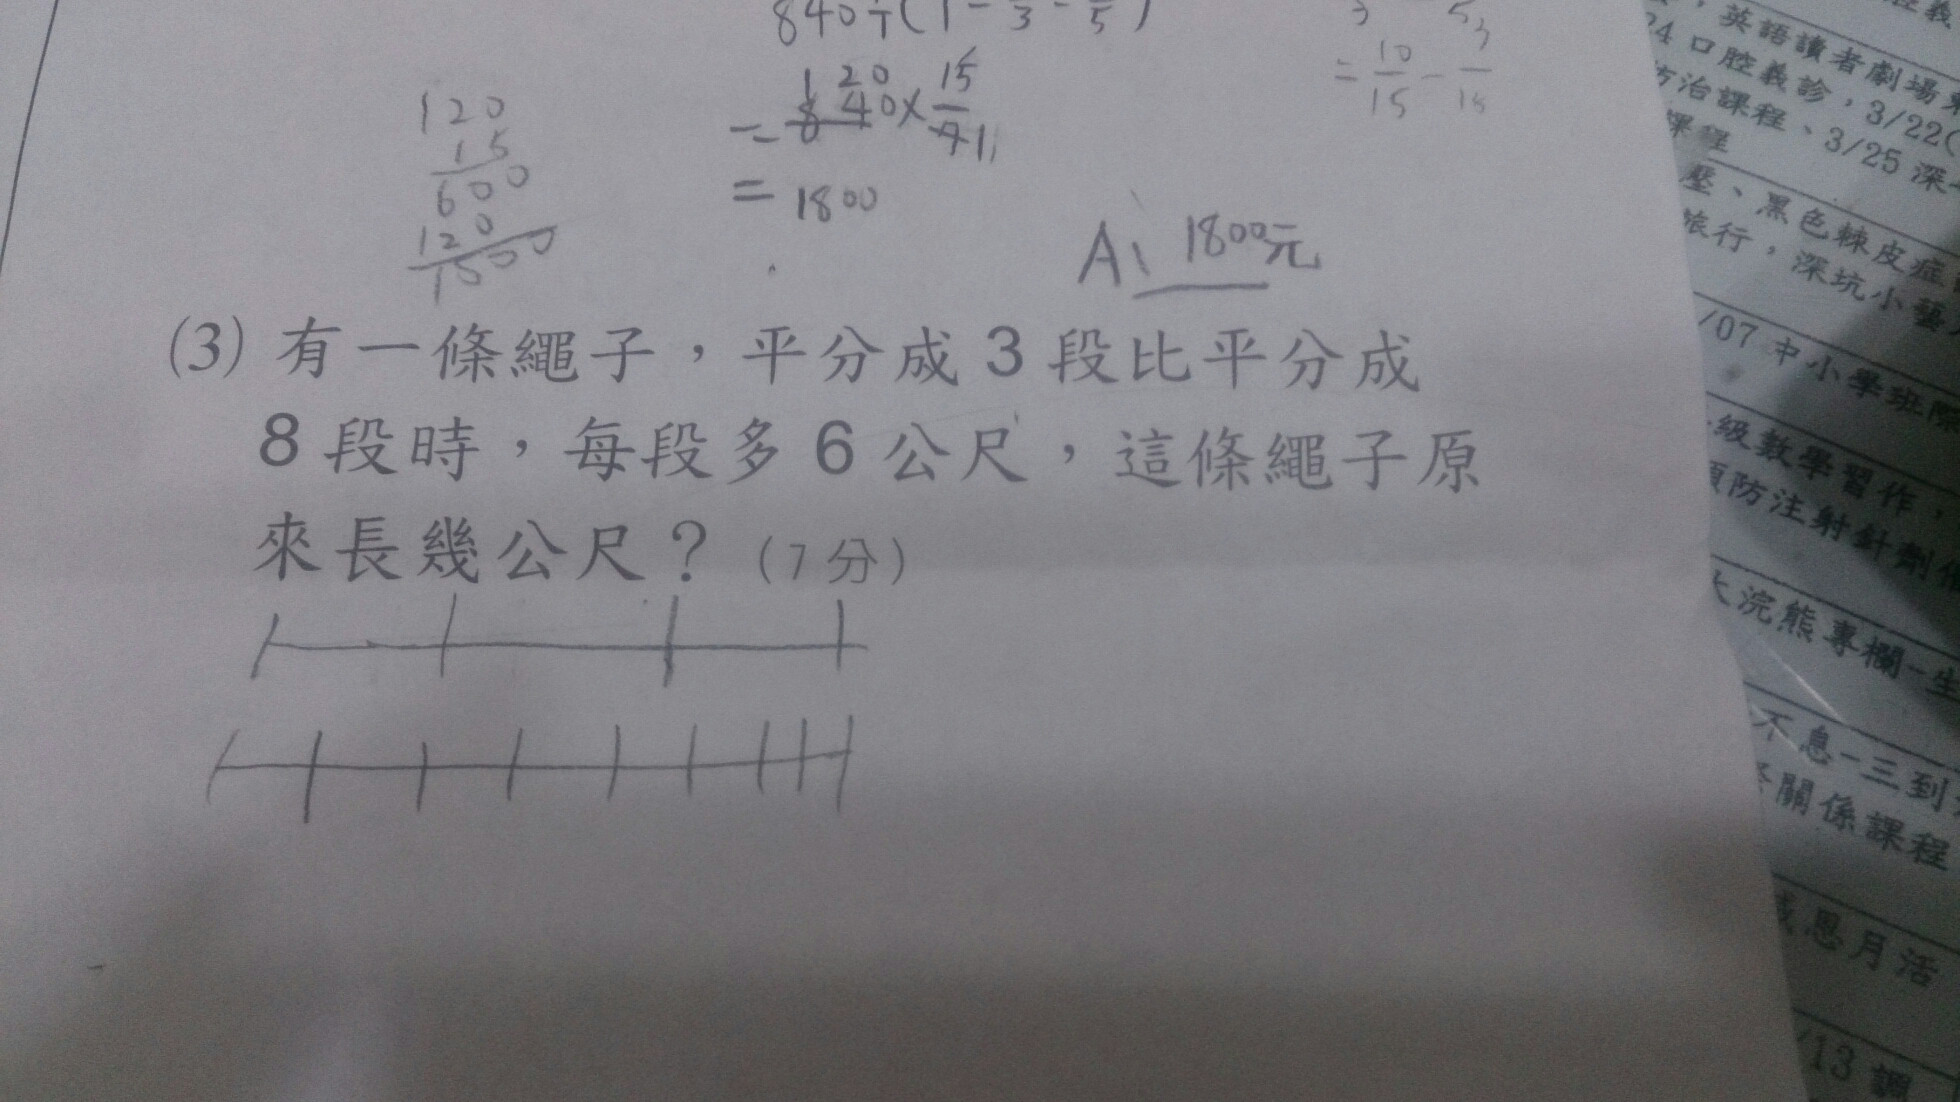 840÷(1-
120
15
600
120
1500
= 840×15
120
= 1800
A: 1800元
= 10/15 -
(3) 有一條繩子，平分成 3 段比平分成
8 段時，每段多 6 公尺，這條繩子原
來長幾公尺？（7 分）
，英語讀者劇場
24 口腔義診，3/22(
防治課程、3/25 深
課程
、黑色棘皮症
旅行，深坑小藝
/07 中小學班際
級數學習作，
預防注射針劑
大浣熊專欄-生
不息-三到
關係課程
感恩月活
/13 調